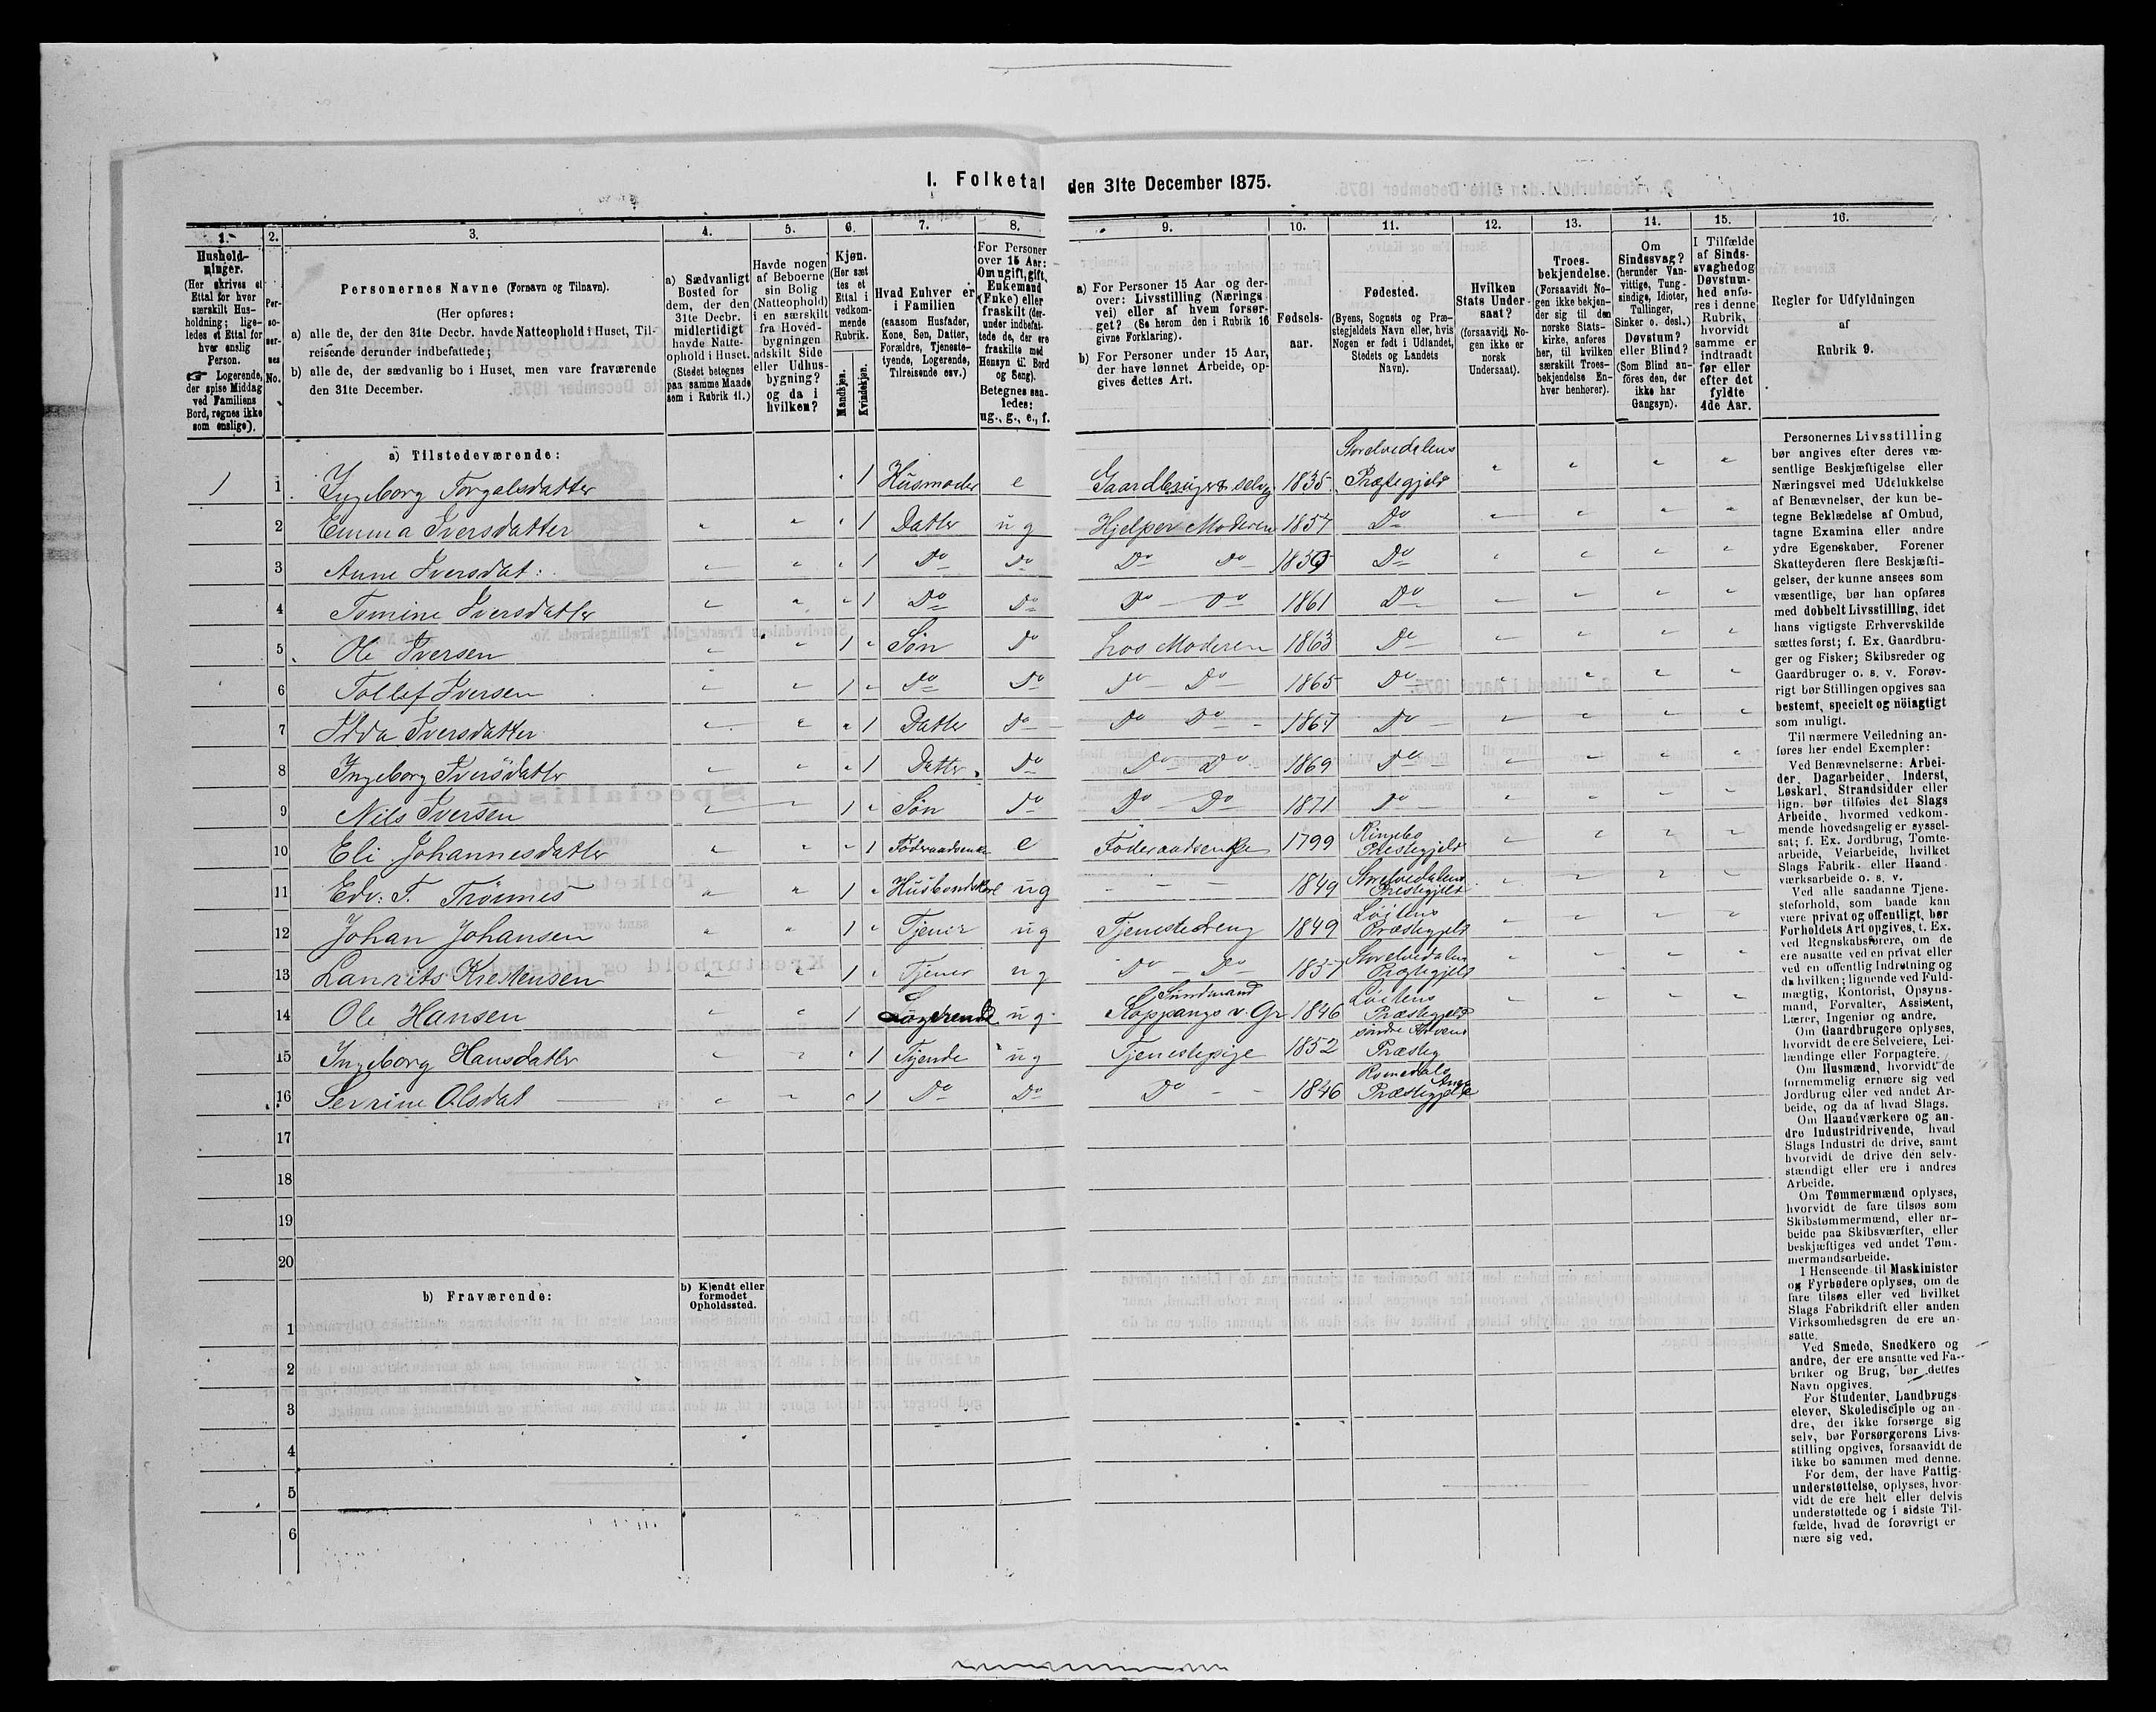 I. Folketal den 31te December 1875.
1. 2. 3. 4. 5. 6. 7. 8. 9. 10. 11. 12. 13. 14. 15. 16.
Hushold-
ninger.
(Her skrives et
Ettal for hver
særskilt Hus-
holdning; lige-
ledes et Ettal for
hver enslig
Person.
☞ Logerende,
der spise Middag
ved Familiens
Bord, regnes ikke
som enslige).
Per-
so-
ner-
nes
No.
Personernes Navne (Fornavn og Tilnavn).
(Her opføres:
a) alle de, der den 31te Decbr. havde Natteophold i Huset, Til-
reisende derunder indbefattede;
b) alle de, der sædvanlig bo i Huset, men vare fraværende
den 31te December.
a) Sædvanligt
Bosted for
dem, der den
31te Decbr.
midlertidigt
havde Natte-
ophold i Huset.
(Stedet betegnes
paa samme Maade
som i Rubrik 11.)
Havde nogen
af Beboerne
sin Bolig
(Natteophold)
i en særskilt
fra Hoved-
bygningen
adskilt Side
eller Udhus-
bygning?
og da i
hvilken?
Kjøn.
(Her sæt
tes et
Ettal i
vedkom-
mende
Rubrik.
Mandkjøn.
Kvindekjøn.
Hvad Enhver er
i Familien
(saasom Husfader,
Kone, Søn, Datter,
Forældre, Tjeneste-
tyende, Logerende,
Tilreisende osv.)
For Personer
over 15 Aar:
Om ugift, gift,
Enkemand
(Enke) eller
fraskilt (der-
under indbefat-
tede de, der ere
fraskilte med
Hensyn til Bord
og Seng).
Betegnes saa-
ledes:
ug., g., e., f.
a) For Personer 15 Aar og der-
over: Livsstilling (Nærings
vei) eller af hvem forsør-
get? (Se herom den i Rubrik 16
givne Forklaring).
b) For Personer under 15 Aar,
der have lønnet Arbeide, op-
gives dettes Art.
Fødsels-
aar.
Fødested.
(Byens, Sognets og Præ-
stegjeldets Navn eller, hvis
Nogen er født i Udlandet,
Stedets og Landets
Navn).
Hvilken
Stats Under-
saat?
(forsaavidt No-
gen ikke er
norsk
Undersaat).
Troes-
bekjendelse.
(Forsaavidt No-
gen ikke bekjen-
der sig til den
norske Stats-
kirke, anføres
her, til hvilken
særskilt Troes-
bekjendelse En-
hver henhører).
Om
Sindssvag?
(herunder Van-
vittige, Tung-
sindige, Idioter,
Tullinger,
Sinker o. desl.)
Døvstum?
eller Blind?
(Som Blind an-
føres den, der
ikke har
Gangsyn).
I Tilfælde
af Sinds-
svaghed og
Døvstum-
hed anfø-
res i denne
Rubrik,
hvorvidt
samme er
indtraadt
før eller
efter det
fyldte
4de Aar.
Regler for Udfyldningen
af
Rubrik 9.
a) Tilstedeværende:
1 1 Ingeborg Torgalsdatter 1 Husmoder e Gaardbruger selvej 1835 Storelvedalens Præstegjeld
2 Emma Iversdatter 1 Datter ug Hjelper Moderen 1857 Do
3 Anne Iversdat: 1 Do Do Do Do 1859 Do
4 Tomine Iversdatter 1 Do Do Do - Do 1861 Do
5 Ole Iversen 1 Søn Do hos Moderen 1863 Do
6 Tollef Iversen 1 Do Do Do - Do 1865 Do
7 Idda Iversdatter 1 Datter Do Do Do 1867 Do
8 Ingeborg Iversdatter 1 Datter Do Do - Do 1869 Do
9 Nils Iversen 1 Søn Do Do - Do 1871 Do
10 Eli Johannesdatter 1 Føderaadsenke e Føderaadsenke 1799 Ringebo Præstegjeld
11 Edv: T. Trønnes 1 Husbondskarl ug - - - 1849 Storelvedalens Præstegjeld
12 Johan Johansen 1 Tjener ug Tjenestedreng 1849 Løitens Præstegjeld
13 Laurits Kristensen 1 Tjener ug Do - Do 1857 Storelvedalens Prægtegjeld
14 Ole Hansen 1 Logerende ug Koppangs v Gr 1846 Løitens Præstegjeld
15 Ingeborg Hansdatter 1 Tyende ug Tjenestepige 1852 søndre Præsteg
16 Serrine Olsdat 1 Do Do Do - - 1846 Romedals Præstegjeld
17
18
19
20
b) Fraværende:
b) Kjendt eller
formodet
Opholdssted.
1
2
3
4
5
6
Personernes Livsstilling
bør angives efter deres væ-
sentlige Beskjæftigelse eller
Næringsvei med Udelukkelse
af Benævnelser, der kun be-
tegne Beklædelse af Ombud,
tagne Examina eller andre
ydre Egenskaber. Forener
Skatteyderen flere Beskjæfti-
gelser, der kunne ansees som
væsentlige, bør han opføres
med dobbelt Livsstilling, idet
hans vigtigste Erhvervskilde
sættes først; f. Ex. Gaardbru-
ger og Fisker; Skibsreder og
Gaardbruger o. s. v. Forøv-
rigt bør Stillingen opgives saa
bestemt, specielt og nöiagtigt
som muligt.
Til nærmere Veiledning an-
føres her endel Exempler:
Ved Benævnelserne: Arbei-
der, Dagarbeider, Inderst,
Løskarl, Strandsidder eller
lign. bør tilføies det Slags
Arbeide, hvormed vedkom-
mende hovedsagelig er syssel-
sat; f. Ex. Jordbrug, Tomte-
arbeide, Veiarbeide, hvilket
Slags Fabrik- eller Haand-
værksarbeide o. s. v.
Ved alle saadanne Tjene-
steforhold, som baade kan
være privat og offentligt, bør
Forholdets Art opgives, t. Ex.
ved Regnskabsførere, om de
ere ansatte ved en privat eller
ved en offentlig Indretning og
da hvilken; lignende ved Fuld-
mægtig, Kontorist, Opsyns-
mand, Forvalter, Assistent,
Lærer, Ingeniør og andre.
Om Gaardbrugere oplyses,
hvorvidt de ere Selveiere, Lei-
lændinge eller Forpagtere.
Om Husmænd, hvorvidt de
fornemmelig ernære sig ved
Jordbrug eller ved andet Ar-
beide, og da af hvad Slags.
Om Haandværkere og an-
dre Industridrivende, hvad
Slags Industri de drive, samt
hvorvidt de drive den selv-
stændigt eller ere i andres
Arbeide.
Om Tømmermænd oplyses,
hvorvidt de fare tilsøs som
Skibstømmermænd, eller ar-
beide paa Skibsværfter, eller
beskjæftiges ved andet Tøm-
mermandsarbeide.
I Henseende til Maskinister
og Fyrbødere oplyses, om de
fare tilsøs eller ved hvilket
Slags Fabrikdrift eller anden
Virksomhedsgren de ere an-
satte.
Ved Smede, Snedkere og
andre, der ere ansatte ved Fa-
briker og Brug, bør dettes
Navn opgives.
For Studenter, Landbrugs
elever, Skoledisciple og an-
dre, der ikke forsørge sig
selv, bør Forsørgerens Livs-
stilling opgives, forsaavidt de
ikke bo sammen med denne.
For dem, der have Fattig-
understøttelse, oplyses, hvor-
vidt de ere helt eller delvis
understøttede og i sidste Til-
fælde, hvad de forøvrigt er
nære sig ved.